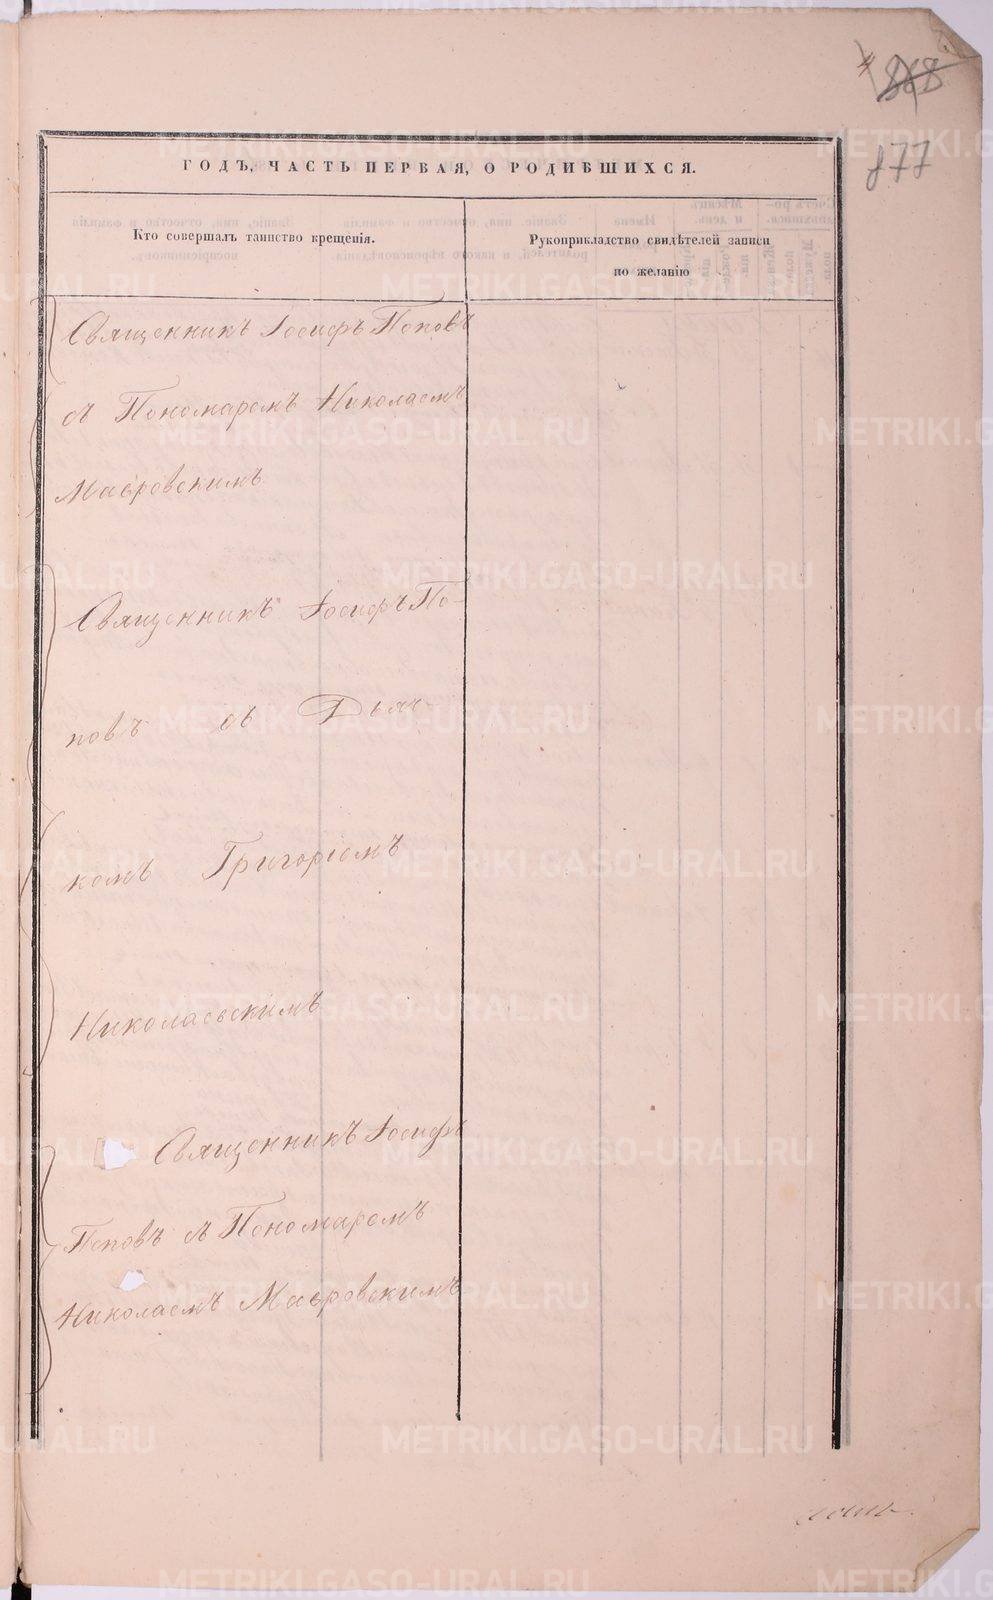 868
877
ГОДЪ, ЧАСТЬ ПЕРВАЯ, О РОДИВШИХСЯ.
Кто совершалъ таинство крещенія.
Рукоприкладство свидѣтелей записи
по желанію
Священникъ Іосифъ Поповъ
съ Пономаремъ Николаемъ
Мавровскимъ
Священникъ Іосифъ По-
повъ съ Дьяч-
комъ Григоріемъ
Николаевскимъ
Священникъ Іосифъ
Поповъ съ Пономаремъ
Николаемъ Мавровскимъ
METRIKI.GASO-URAL.RU